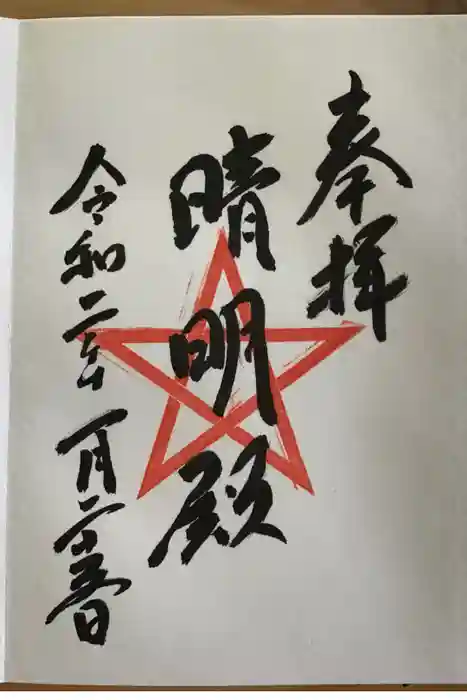 奉拝
晴明殿
令和二年一月二十五日